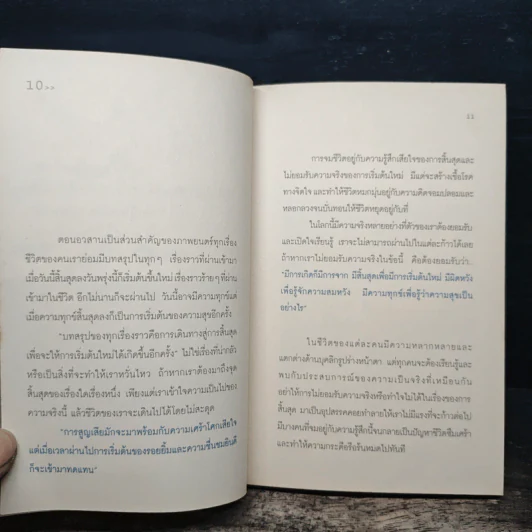 10
ตอนอวสานเป็นส่วนสำคัญของภาพยนตร์ทุกเรื่อง
ชีวิตของคนเราย่อมมีบทสรุปในทุกๆ เรื่องราวที่ผ่านเข้ามา
เมื่อวันนี้สิ้นสุดลงวันพรุ่งนี้ก็เริ่มต้นขึ้นใหม่ เรื่องราวร้ายๆที่ผ่าน
เข้ามาในชีวิต อีกไม่นานก็จะผ่านไป วันนี้อาจมีความทุกข์แต่
เมื่อความทุกข์สิ้นสุดลงก็เป็นการเริ่มต้นของความสุขอีกครั้ง
"บทสรุปของทุกเรื่องราวคือการเดินทางสู่การสิ้นสุด
เพื่อจะให้การเริ่มต้นใหม่ได้เกิดขึ้นอีกครั้ง" ไม่ใช่เรื่องที่น่ากลัว
หรือเป็นสิ่งที่จะทำให้เราหวั่นไหว ถ้าหากเราต้องมาถึงจุด
สิ้นสุดของเรื่องใดเรื่องหนึ่ง เพียงแต่เราเข้าใจความเป็นไปของ
ความจริงนี้ แล้วชีวิตของเราจะเดินไปได้โดยไม่สะดุด
"การสูญเสียมักจะมาพร้อมกับความเศร้าโศกเสียใจ
แต่เมื่อเวลาผ่านไปการเริ่มต้นของรอยยิ้มและความชื่นชมยินดี
ก็จะเข้ามาทดแทน"
11
การจมชีวิตอยู่กับความรู้สึกเสียใจของการสิ้นสุดและ
ไม่ยอมรับความจริงของการเริ่มต้นใหม่ มีแต่จะสร้างเชื้อโรค
ทางจิตใจ และทำให้ชีวิตหมกมุ่นอยู่กับความคิดจอมปลอมและ
หลอกลวงจนบั่นทอนให้ชีวิตหยุดอยู่กับที่
ในโลกนี้มีความจริงหลายอย่างที่ตัวของเราต้องยอมรับ
และเปิดใจเรียนรู้ เราจะไม่สามารถผ่านไปในแต่ละก้าวได้เลย
ถ้าหากเราไม่ยอมรับความจริงในข้อนี้ คือต้องยอมรับว่า..
"มีการเกิดก็มีการจาก มีสิ้นสุดเพื่อมีการเริ่มต้นใหม่ มีผิดหวัง
เพื่อรู้จักความสมหวัง มีความทุกข์เพื่อรู้ว่าความสุขเป็น
อย่างไร"
ในชีวิตของแต่ละคนมีความหลากหลายและ
แตกต่างด้านบุคลิกรูปร่างหน้าตา แต่ทุกคนจะต้องเรียนรู้และ
พบกับประสบการณ์ของความเป็นจริงที่เหมือนกัน
อย่าให้การไม่ยอมรับหรือทำใจไม่ได้ในเรื่องของการ
สิ้นสุด มาเป็นอุปสรรคคอยทำลายให้เราไม่มีแรงที่จะก้าวต่อไป
มีบางคนที่จมอยู่กับความรู้สึกนี้จนกลายเป็นปัญหาชีวิตซึมเศร้า
และทำให้ความกระตือรือร้นหมดไปทันที